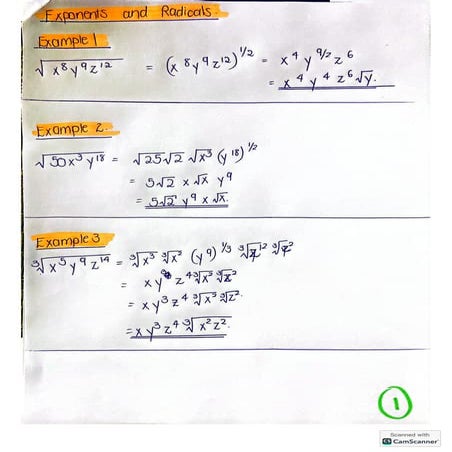 Exponents and Radicals.
Example 1
√x⁸y⁹z¹² = (x⁸y⁹z¹²)^1/2 = x⁴ y^9/2 z⁶
= x⁴ y⁴ z⁶ √y.
Example 2.
√50x³y¹⁸ = √25√2 √x³ (y¹⁸)^1/2
= 5√2 x √x y⁹
= 5√2 y⁹ x √x.
Example 3
∛x⁵y⁹z¹⁴ = ∛x³ ∛x² (y⁹)^1/3 ∛z¹² ∛z²
= xy³ z⁴ ∛x² ∛z²
= xy³z⁴ ∛x² ∛z².
= xy³z⁴ ∛x²z².
1
Scanned with
CamScanner